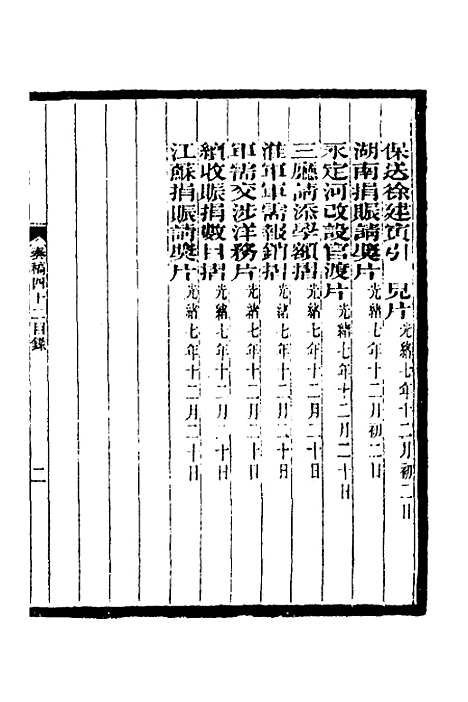 保送徐建寅引　見片光緒七年十二月初二日
湖南捐賑請獎片光緒七年十二月初二日
永定河改設官渡片光緒七年十二月二十日
三廳請添學額摺光緒七年十二月二十日
淮軍軍需報銷摺光緒七年十二月二十日
軍需交涉洋務片光緒七年十二月二十日
續收賑捐數目摺光緒七年十二月二十日
江蘇捐賑請獎片光緒七年十二月二十日
奏稿四十二目錄
二